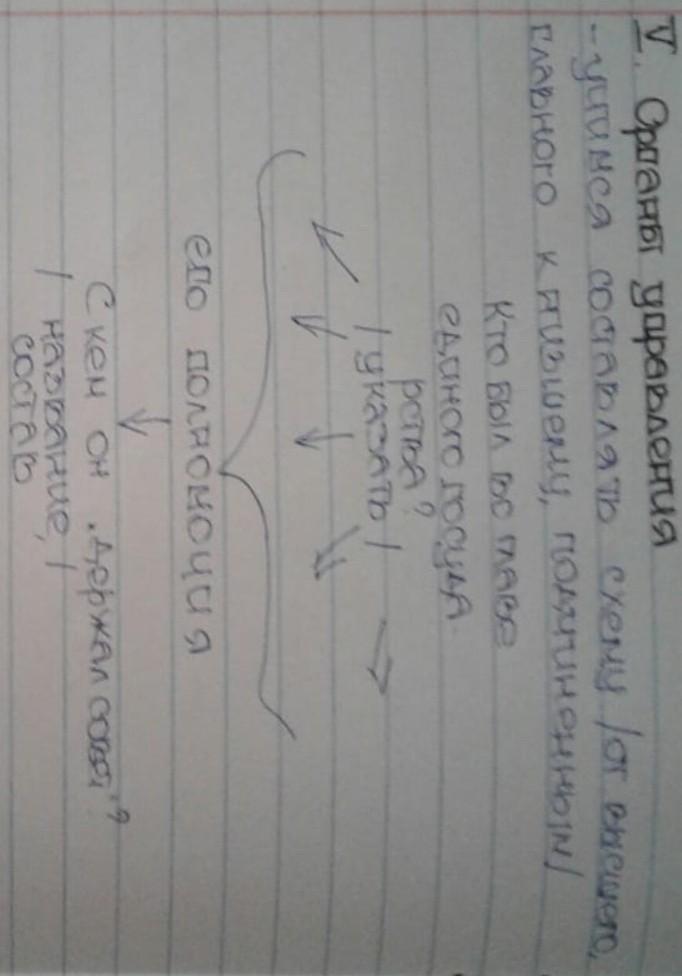 V. Органы управления
- учимся составлять схему /от высшего,
главного к низшему, подчиненным/
Кто был во главе
единого госуда
рства?
/указать/
его полномочия
С кем он „держал совет"?
/название,/
состав